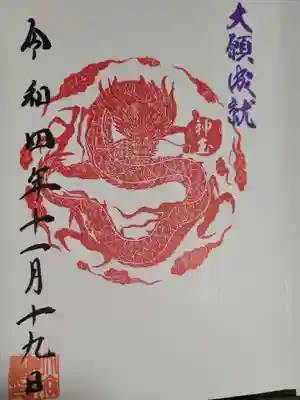 大願成就
令和四年十一月十九日